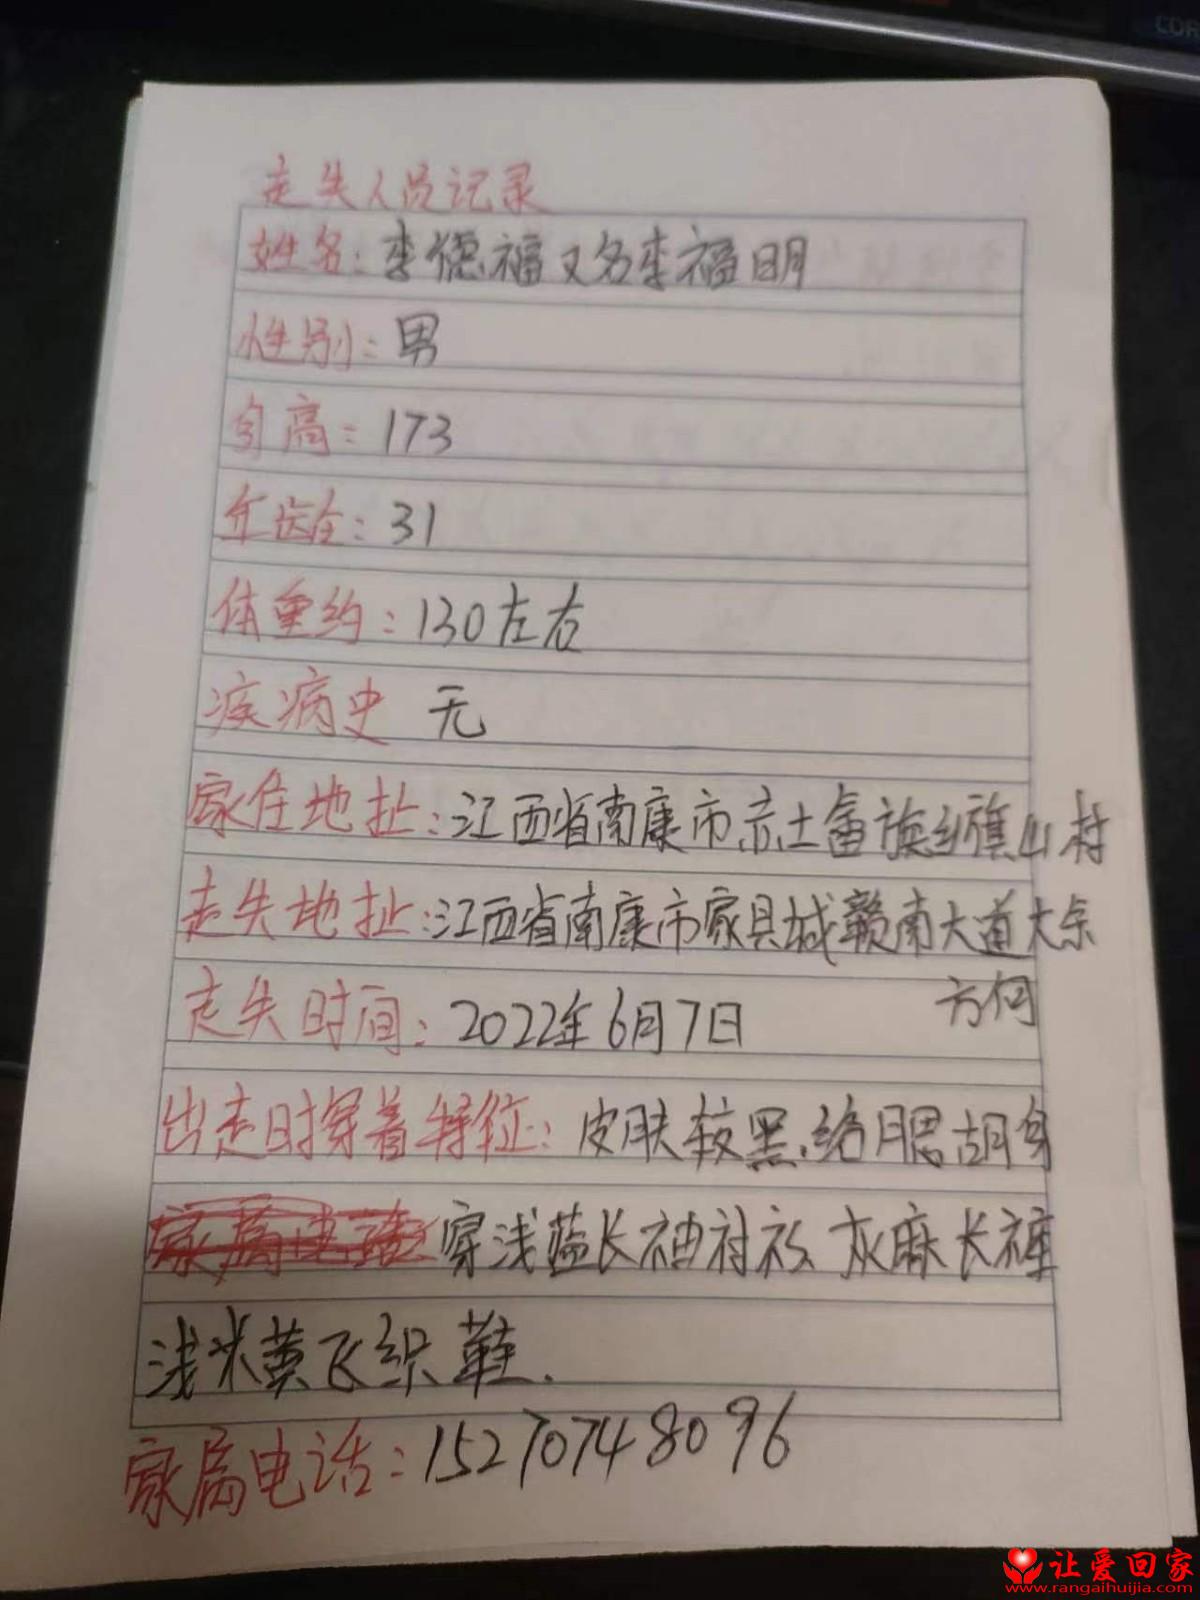 走失人员记录
姓名：李德福又名李福明
性别：男
身高：173
年龄：31
体重约：130左右
疾病史 无
家住地址：江西省南康市赤土畲族乡旗山村
走失地址：江西省南康市家具城赣南大道大余
方向
走失时间：2022年6月7日
出走时穿着特征：皮肤较黑.络腮胡身
穿浅蓝长袖衬衫 灰麻长裤
浅米黄飞织鞋.
家属电话：15270748096
让爱回家
www.rangaihuijia.com